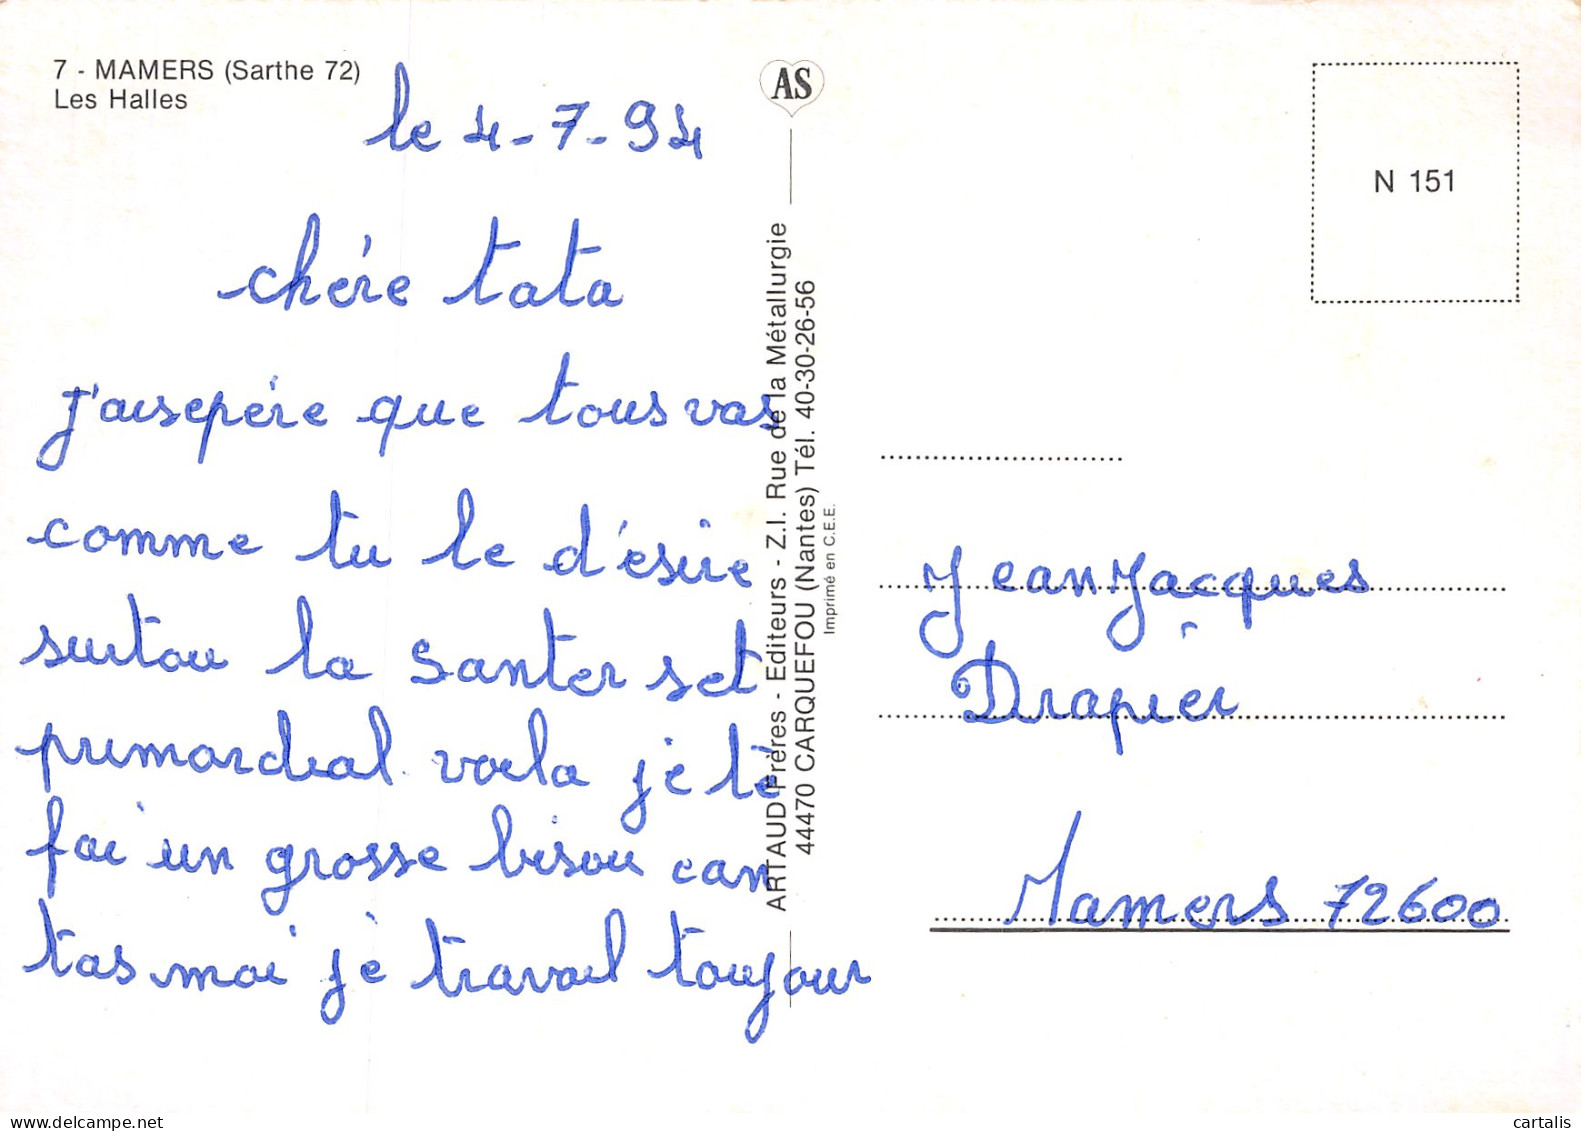 7 - MAMERS (Sarthe 72)
Les Halles
le 4-7-94
chére tata
j'aisepére que tous vas
comme tu le d'ésire
surtou la santer set
primordial voila je tè
fai un grosse bisou can
tas moi jè travail toujour
AS
ARTAUD Frères - Editeurs - Z.I. Rue de la Métallurgie
44470 CARQUEFOU (Nantes) Tél. 40-30-26-56
Imprimé en C.E.E.
N 151
Jean Jacques
Drapier
Mamers 72600
cartalis